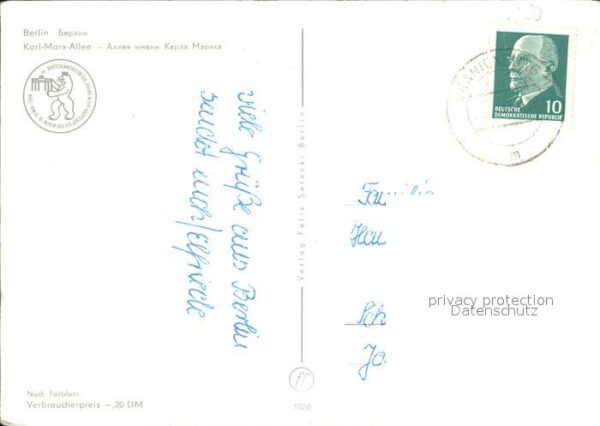 Berlin Берлин
Karl-Marx-Allee – Аллея имени Карла Маркса
viele Grüße aus Berlin
sendet euch Elfriede
Verlag Felix Setecki Berlin
10
DEUTSCHE
DEMOKRATISCHE REPUBLIK
Familie
Hau
Sch
Jo
privacy protection
Datenschutz
Nach Farbfoto
Verbraucherpreis –,20 DM
1026